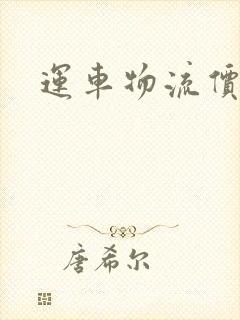 運車物流價
唐希尔